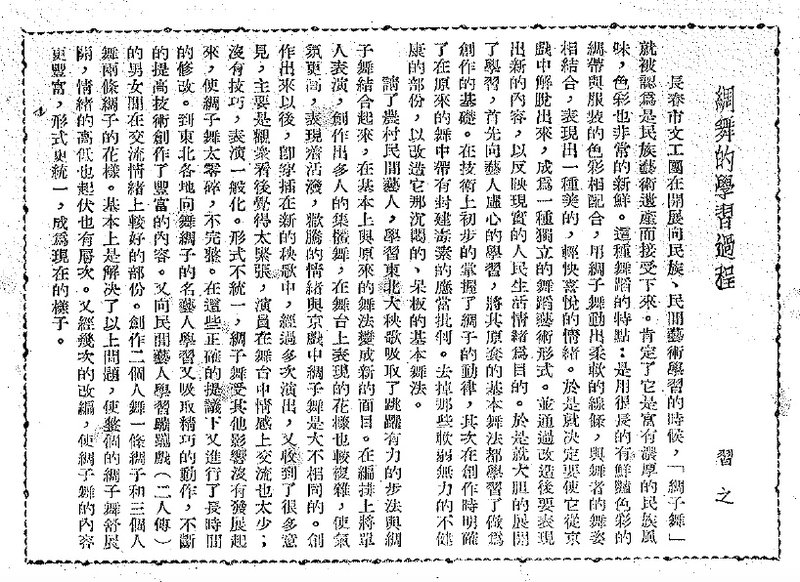 綢舞的學習過程
習之
長春市文工團在開展向民族、民間藝術學習的時候，「綢子舞」
就被認爲是民族藝術遺產而接受下來。肯定了它是富有濃厚的民族風
味，色彩也非常的新鮮。這種舞蹈的特點：是用很長的有鮮豔色彩的
綢帶與服裝的色彩相配合，用綢子舞動出柔軟的線條，與舞者的舞姿
相結合，表現出一種美的，輕快喜悅的情緒。於是就决定要使它從京
戲中解脫出來，成爲一種獨立的舞蹈藝術形式。並通過改造後要表現
出新的內容，以反映現實的人民生活情緒爲目的。於是就大胆的展開
了學習，首先向藝人虛心的學習，將其原套的基本舞法都學習了做爲
創作的基礎。在技術上初步的掌握了綢子的動律，其次在創作時明確
了在原來的舞中帶有封建毒素的應當批判。去掉那些軟弱無力的不健
康的部份，以改造它那沉悶的、呆板的基本舞法。
請了農村民間藝人，學習東北大秧歌吸取了跳躍有力的步法與綢
子舞結合起來，在基本上與原來的舞法變成新的面目。在編排上將單
人表演，創作出多人的集體舞，在舞台上表現的花樣也較複雜，使氣
氛更高，表現着活潑，歡騰的情緒與京戲中綢子舞是大不相同的。創
作出來以後，卽穿插在新的秧歌中，經過多次演出，又收到了很多意
見，主要是觀衆看後覺得太緊張，演員在舞台中情感上交流也太少；
沒有技巧，表演一般化。形式不統一，綢子舞受其他影響沒有發展起
來，使綢子舞太零碎，不完整。在這些正確的提議下又進行了長時間
的修改。到東北各地向舞綢子的名藝人學習又吸取精巧的動作，不斷
的提高技術創作了豐富的內容。又向民間藝人學習蹦蹦戲（二人傳）
的男女間在交流情緒上較好的部份。創作二個人舞一條綢子和三個人
舞兩條綢子的花樣。基本上是解决了以上問題，使整個的綢子舞舒展
開，情緒的高低也起伏也有層次。又經幾次的改編，使綢子舞的內容
更豐富，形式更統一，成爲現在的樣子。